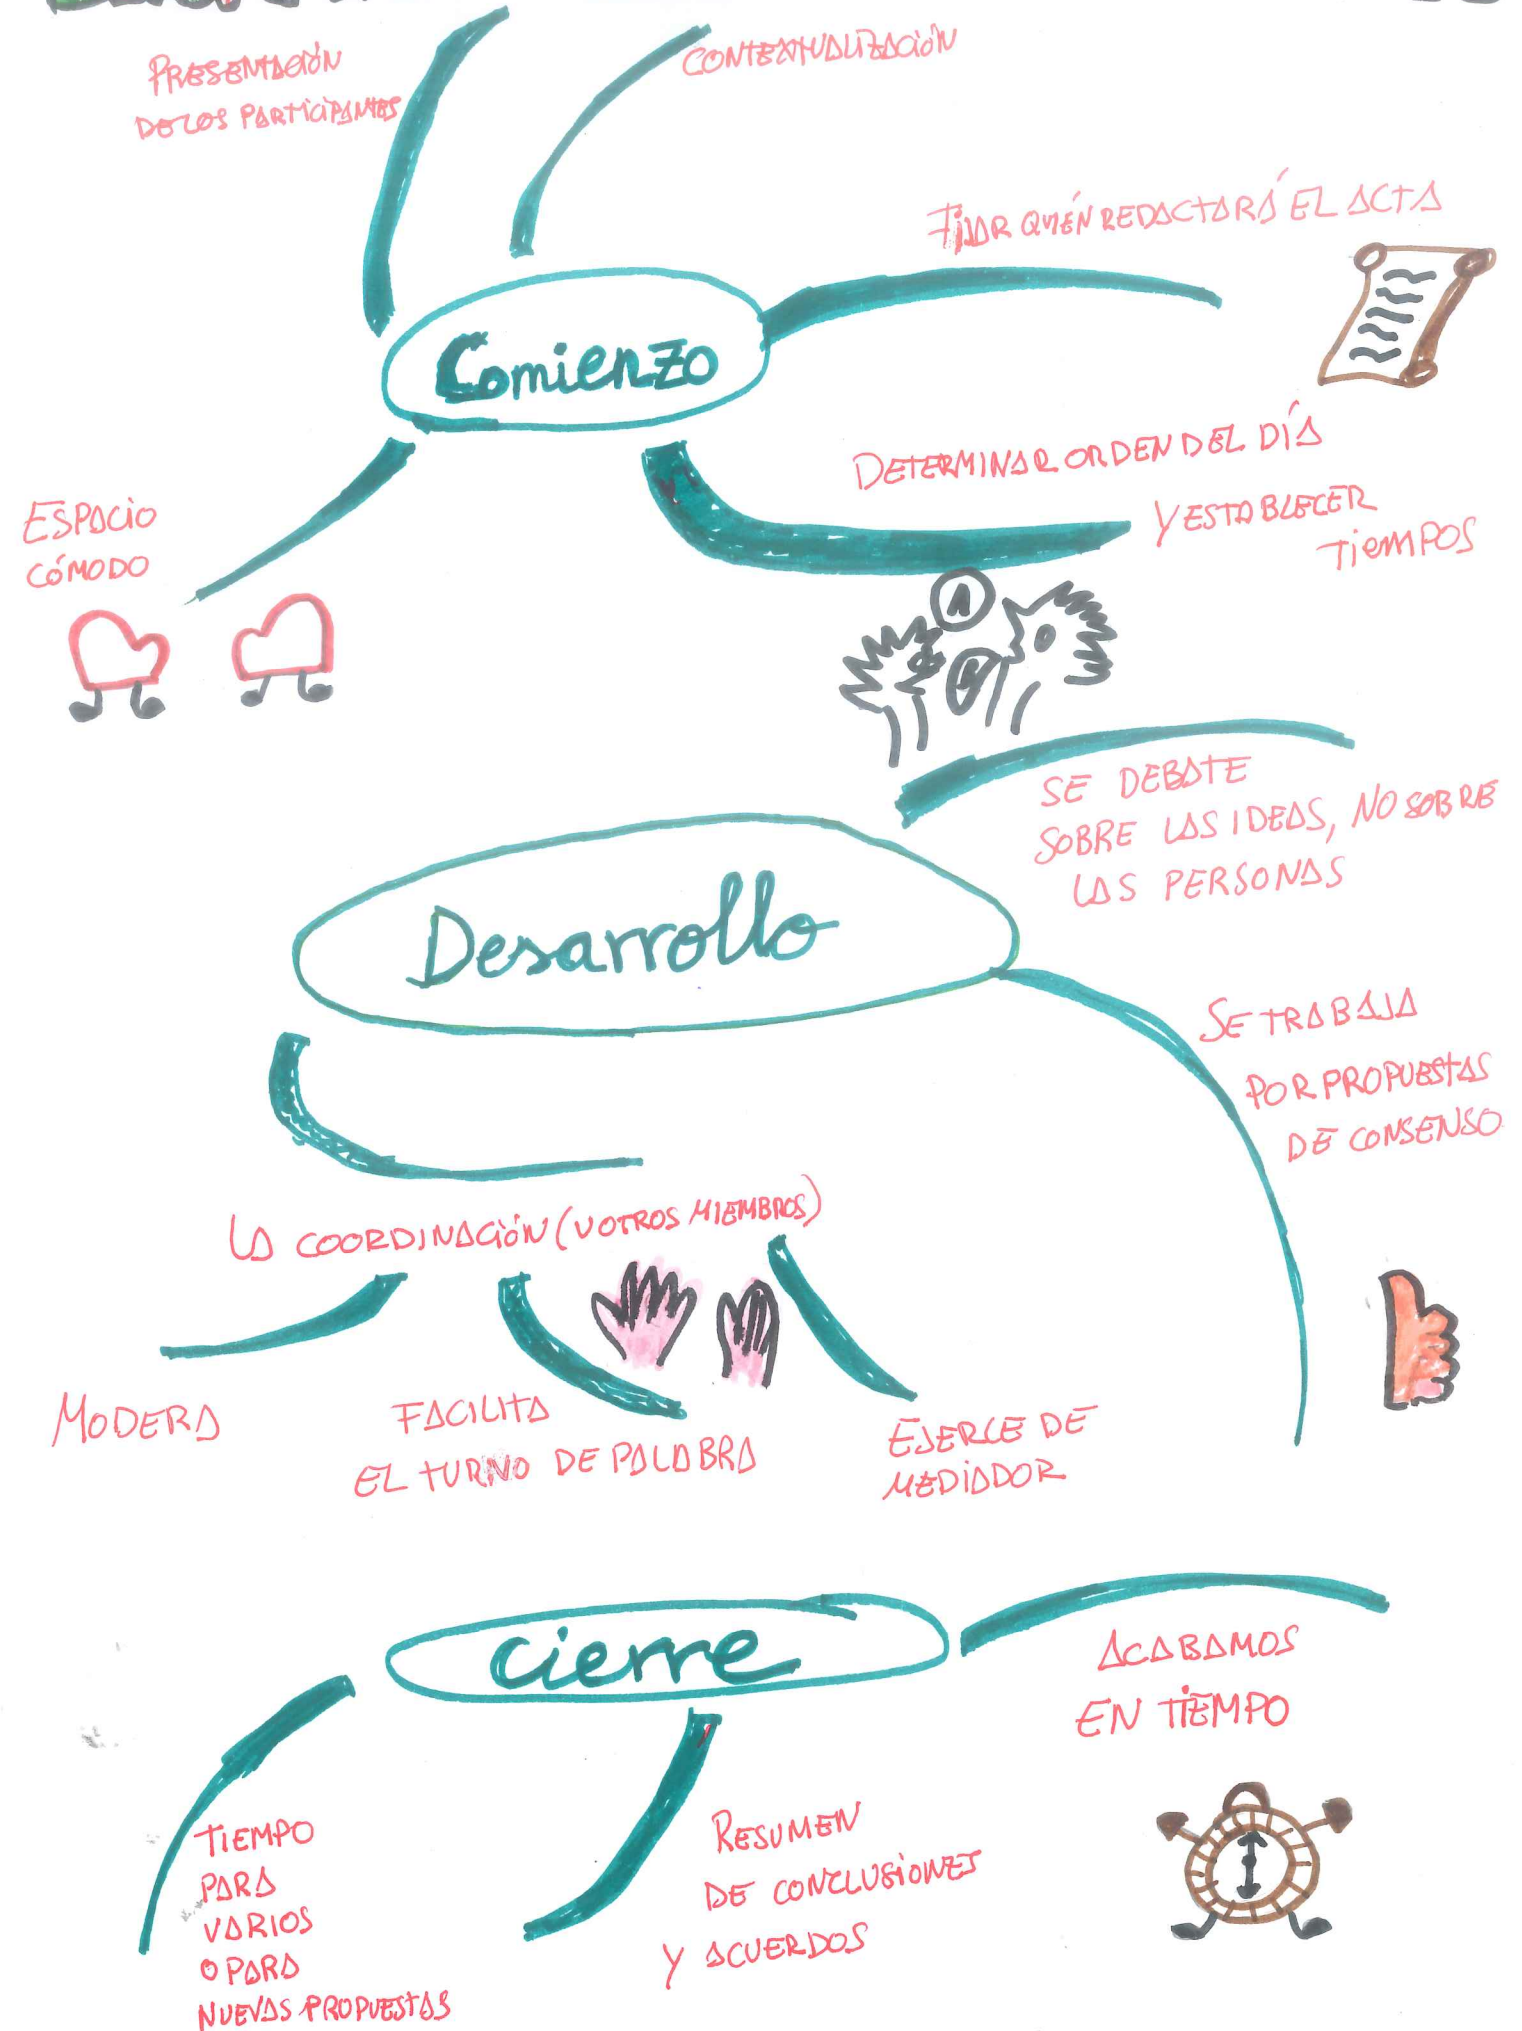 PRESENTACIÓN
DE LOS PARTICIPANTES
CONTEXTUALIZACIÓN
FIJAR QUIÉN REDACTARÁ EL ACTA
Comienzo
DETERMINAR ORDEN DEL DÍA
Y ESTABLECER
TIEMPOS
ESPACIO
CÓMODO
SE DEBATE
SOBRE LAS IDEAS, NO SOBRE
LAS PERSONAS
Desarrollo
SE TRABAJA
POR PROPUESTAS
DE CONSENSO
LA COORDINACIÓN (U OTROS MIEMBROS)
MODERA
FACILITA
EL TURNO DE PALABRA
EJERCE DE
MEDIADOR
Cierre
ACABAMOS
EN TIEMPO
TIEMPO
PARA
VARIOS
O PARA
NUEVAS PROPUESTAS
RESUMEN
DE CONCLUSIONES
Y ACUERDOS